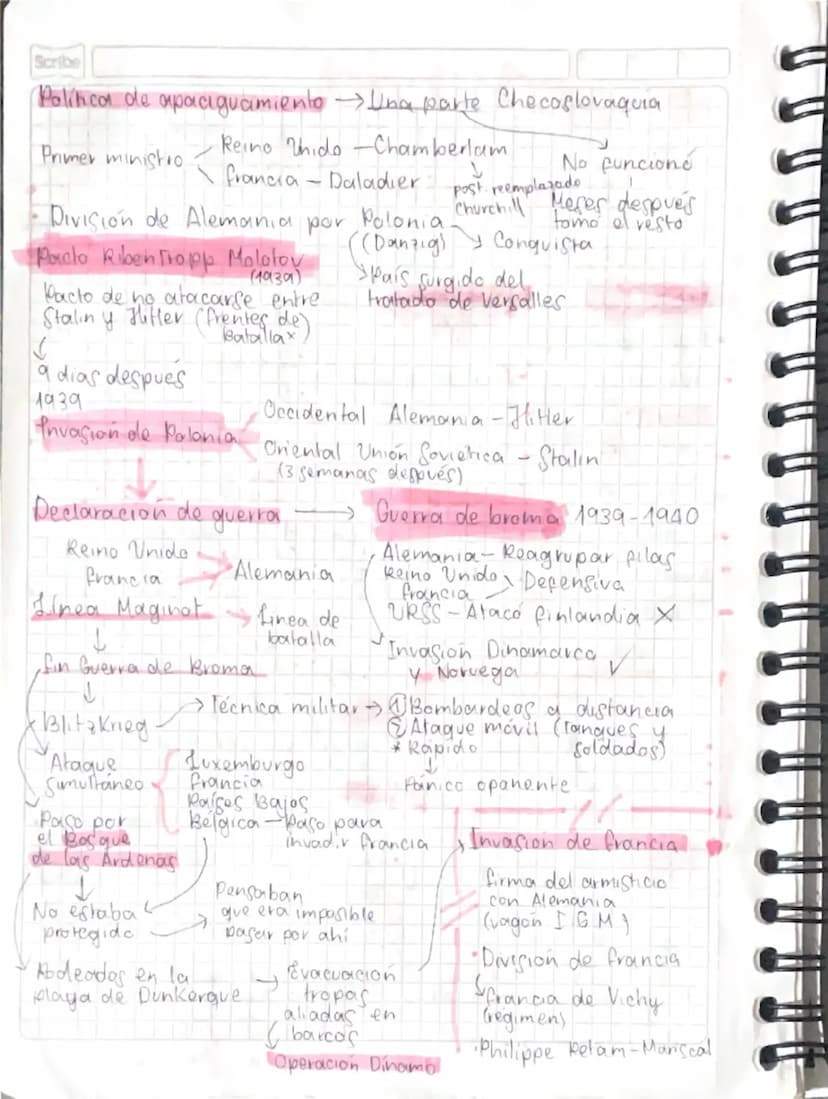 Scribe
Política de apaciguamiento → Una parte Checoslovaquia
Primer ministro
Reino Unido - Chamberlam
Francia - Daladier
post. reemplazado
Churchill
No funcionó
Meses después
tomó el resto
· División de Alemania por Polonia
(Danzig) → Conquista
País surgido del
tratado de Versalles
Pacto RibenTropp Molotov
(1939)
Pacto de no atacarse entre
Stalin y Hitler (frentes de
batalla x)
9 días después
1939
Invasión de Polonia
Occidental Alemania - Hitler
Oriental Unión Sovietica - Stalin
(3 semanas después)
Declaración de guerra → Guerra de broma 1939-1940
Reino Unido
Francia
→ Alemania
Alemania - Reagrupar filas
Reino Unido
Francia
Defensiva
URSS - Atacó Finlandia X
Invasión Dinamarca
y Noruega ✓
Línea Maginot → Línea de
batalla
Fin Guerra de Broma
Blitzkrieg → Técnica militar → ① Bombardeos a distancia
② Ataque móvil (Tanques y
soldados)
* Rápido
Pánico oponente
Ataque
simultáneo
Luxemburgo
Francia
Países Bajos
Bélgica → Paso para
invadir Francia
Paso por
el Bosque
de las Ardenas
No estaba
protegido
Pensaban
que era imposible
pasar por ahí
Rodeados en la
playa de Dunkerque
→ Evacuación
tropas
aliadas en
barcos
Operación Dínamo
Invasión de Francia
Firma del armisticio
con Alemania
(vagón I G.M)
· División de Francia
Francia de Vichy
(régimen)
· Philippe Petam - Mariscal